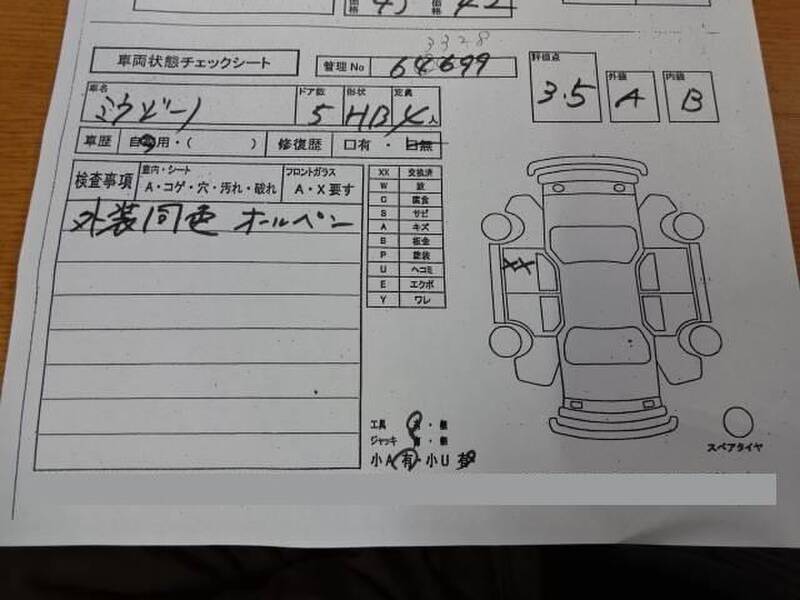 価格 価格
3328
車両状態チェックシート 管理No 64699 評価点 3.5 外装 A 内装 B
車名 ドア数 5 形状 HB 定員 4人
車歴 自家用・( ) 修復歴 □有・□無
検査事項 室内・シート A・コゲ・穴・汚れ・破れ フロントガラス A・X要す
外装同色 オールペン
XX 交換済
W 波
C 腐食
S サビ
A キズ
B 板金
P 塗装
U ヘコミ
E エクボ
Y ワレ
XX
工具 有・無
ジャッキ 有・無
小A有・小U有
スペアタイヤ